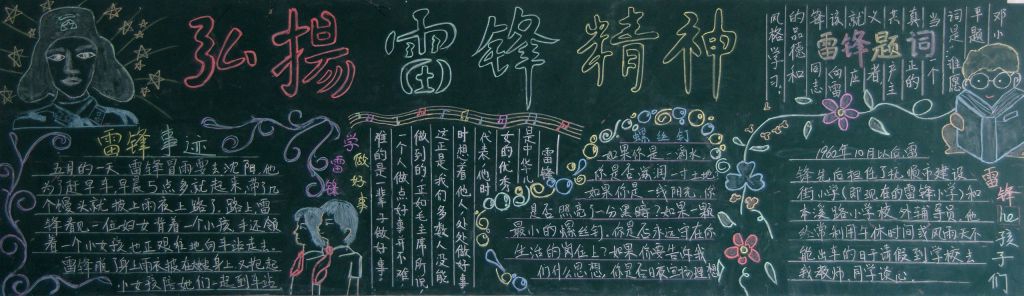 弘揚雷锋精神
雷锋事迹
五月的一天,雷锋冒雨要去沈阳,他
为了赶早车早晨5点多就起来,带了几
个馒头就披上雨衣上路了,路上,雷
锋看见一位妇女背着一个小孩,手还领
着一个小女孩也正艰难地向车站走去。
雷锋脱下身上雨衣披在她身上,又抱起
小女孩陪她们一起到车站
学雷锋
做好事
雷锋
是中华儿
女的优秀
代表,他时
时想着他人,处处做好事
这正是我们多数人没能
做到的,正如毛主席所说
一个人做点好事并不难,
难的是一辈子做好事。
螺丝钉
如果你是一滴水,
你是否滋润一寸土地
如果你是一线阳光,你
是否照亮了一分黑暗?如果一颗
最小的螺丝钉,你是否永远守在你
生活的岗位上?如果你要告诉我
们什么思想,你是否日夜宣扬理想
雷锋题词
邓小
平题
词是:谁愿
当一个
真正的
共产主
义者
就应
该向雷
锋同志
的品德和
风格学习。
1962年10月以后雷
锋先后担任了抚顺市建设
街小学(即现在的雷锋小学)和
本溪路小学校外辅导员,他
经常利用午休时间或风雨天不
能出车的日子请假到学校去
找教师、同学谈心。
雷锋he孩子们